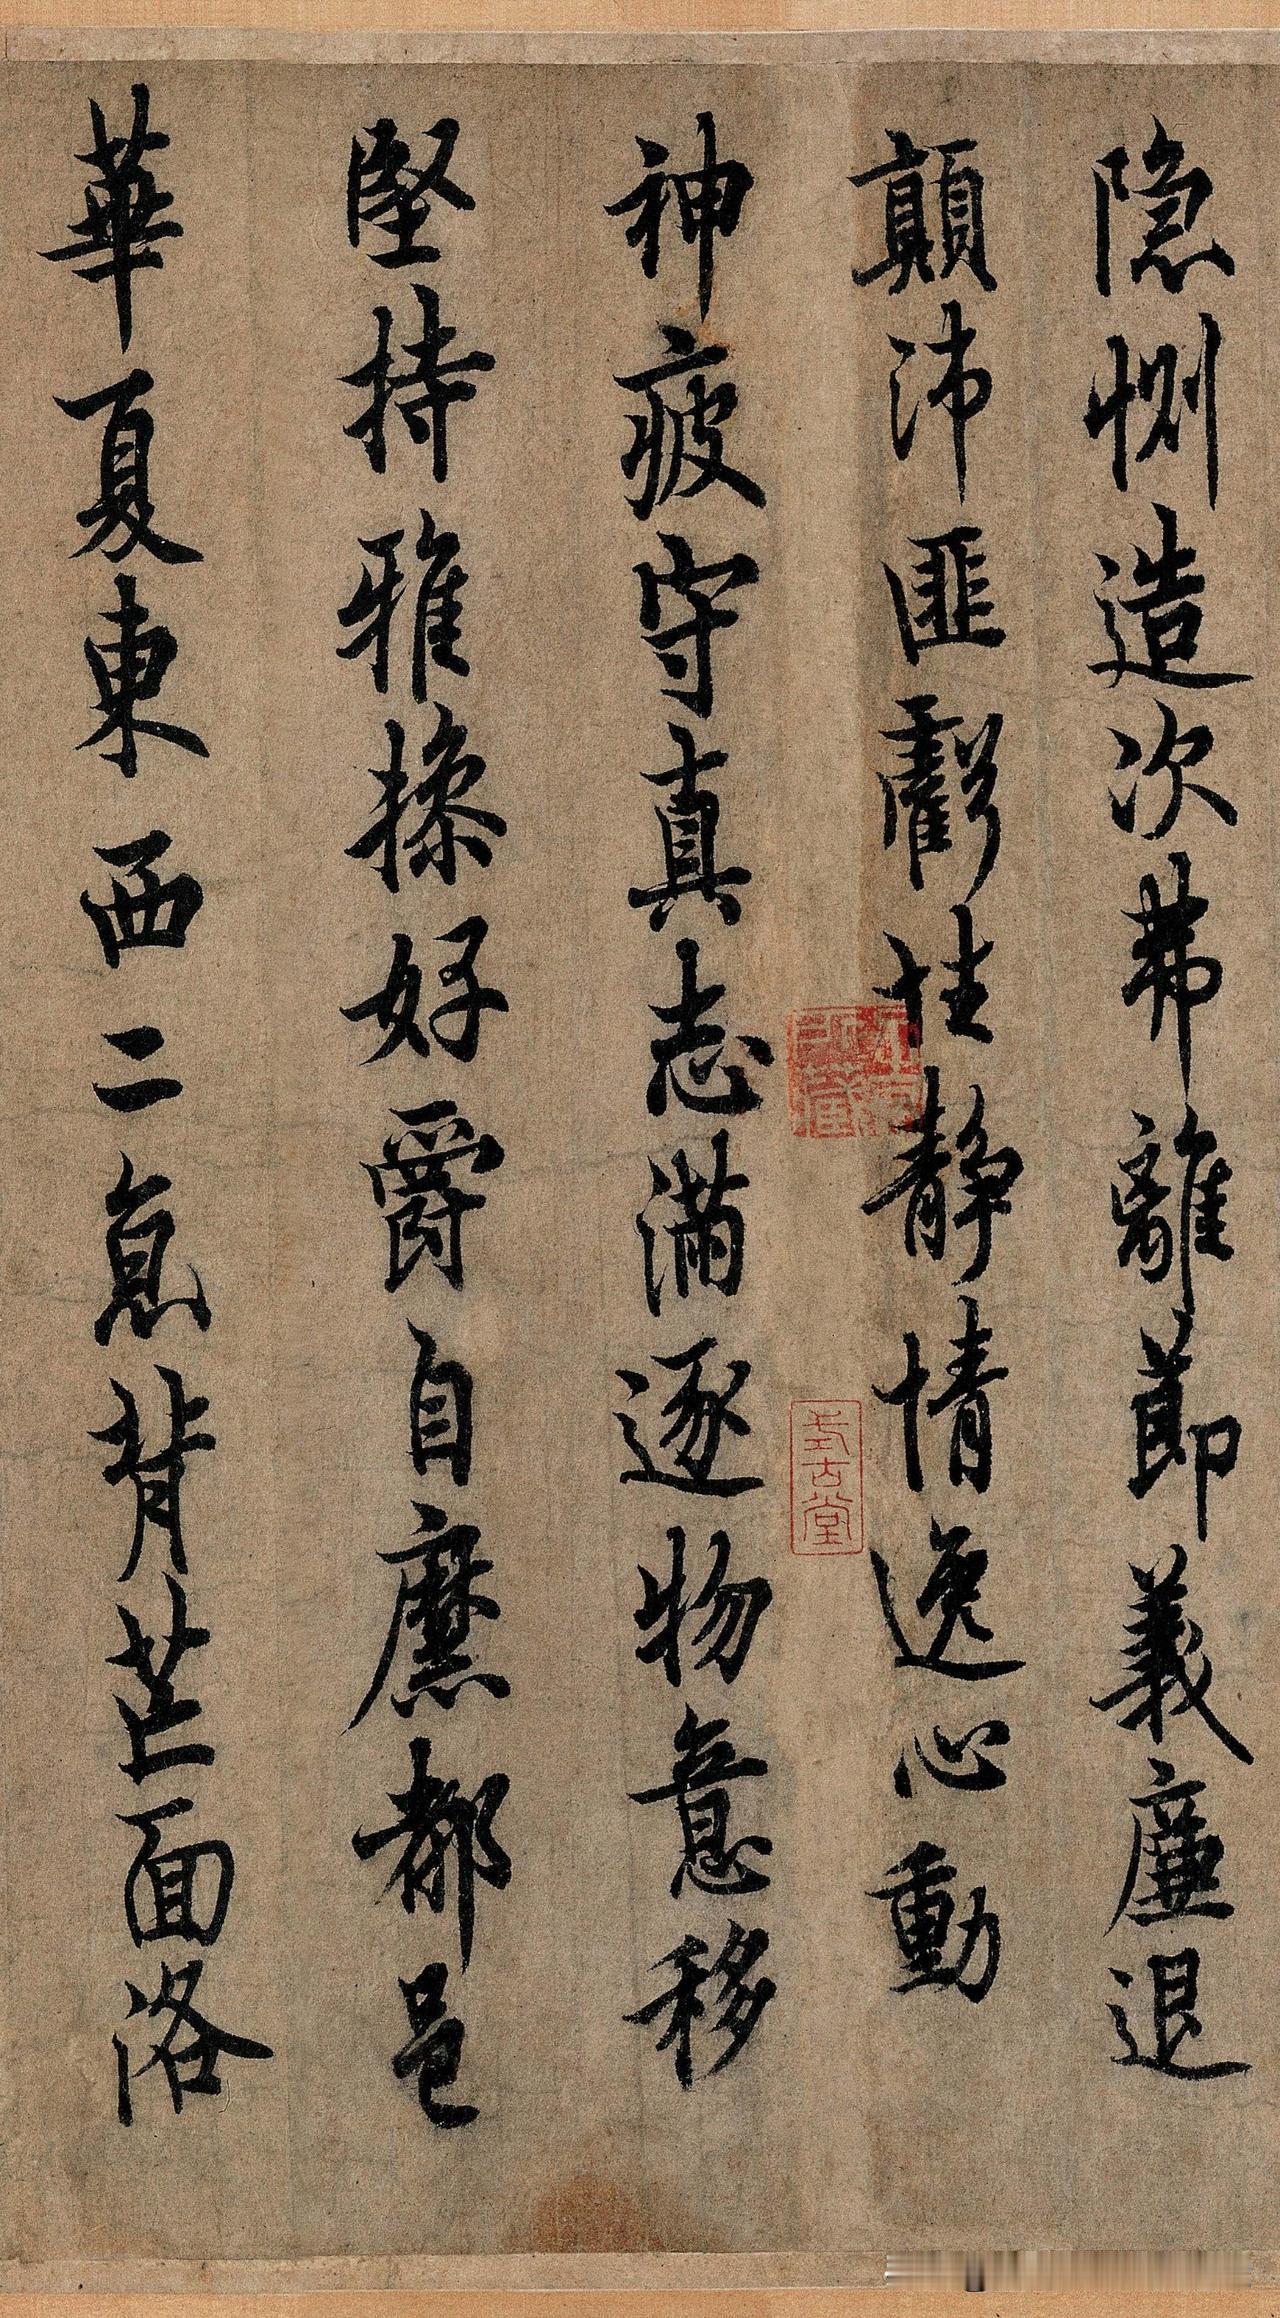 隐恻造次弗離節義廉退
顛沛匪虧性静情逸心動
神疲守真志滿逐物意移
堅持雅操好爵自縻都邑
華夏東西二京背芒面洛
式古堂